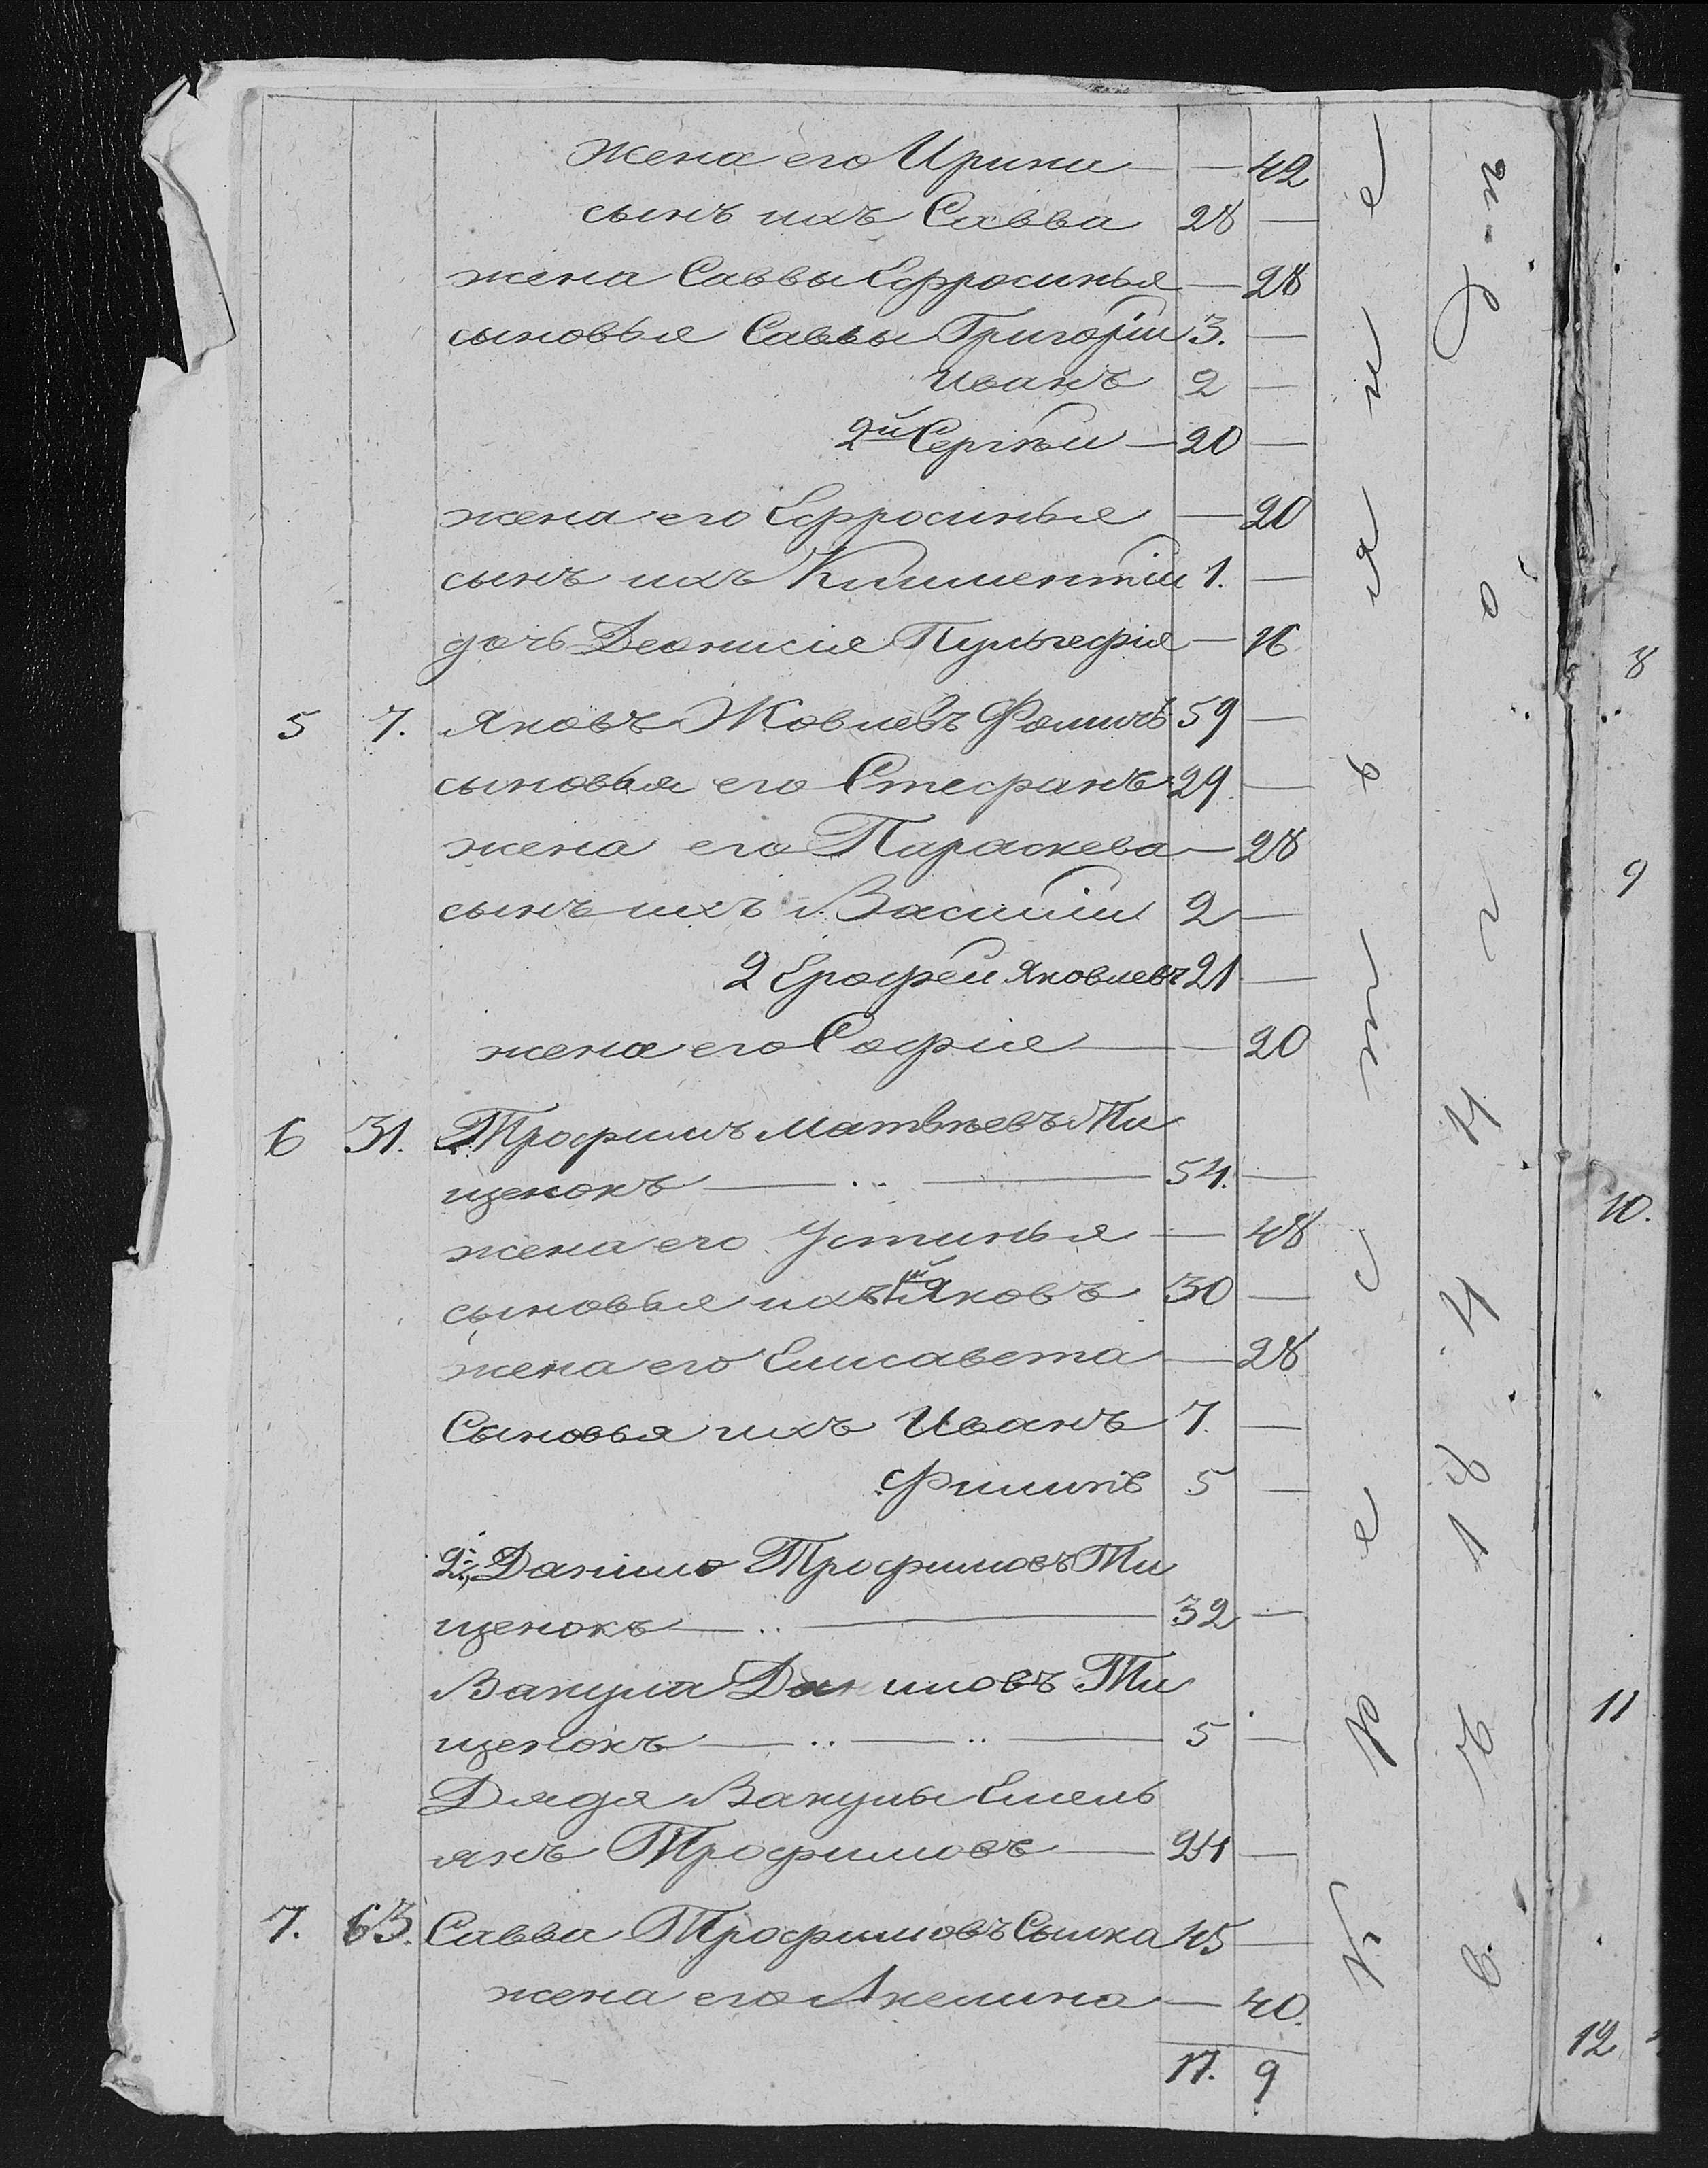 жена его Ирина — — 42
сынъ ихъ Савва 28 —
жена Саввы Ефросинья — 28
сыновья Саввы Григорій 3. —
Иванъ 2 —
2й Сергѣй — 20 —
жена его Ефросинья — 20
сынъ ихъ Климентій 1. —
дочь Деонисія Пульхефія — 16
5 7. Яковъ Яковлевъ Фоминъ 59 —
сыновья его Стефанъ 29 —
жена его Параскева — 28
сынъ ихъ Василій 2 —
2 Ерофей Яковлевъ 21 —
жена его Софія — 20
6 31. Трофимъ Матвѣевъ Ти
щенокъ — .. — 54. —
жена его Устинья — 48
сыновья ихъ 1й Яковъ 30 —
жена его Елисавета — 28
Сыновья ихъ Иванъ 7. —
Филипъ 5 —
2й, Данило Трофимовъ Ти
щенокъ — .. — 32 —
Вакула Даниловъ Ти
щенокъ — .. — .. — 5 —
Дядя Вакулы Емель
янъ Трофимовъ — 24 —
7. 63. Савва Трофимовъ Сышка 45 —
жена его Акелина — 40.
17. 9
Крестьяне
въ 1844 го
8
9
10.
11
12